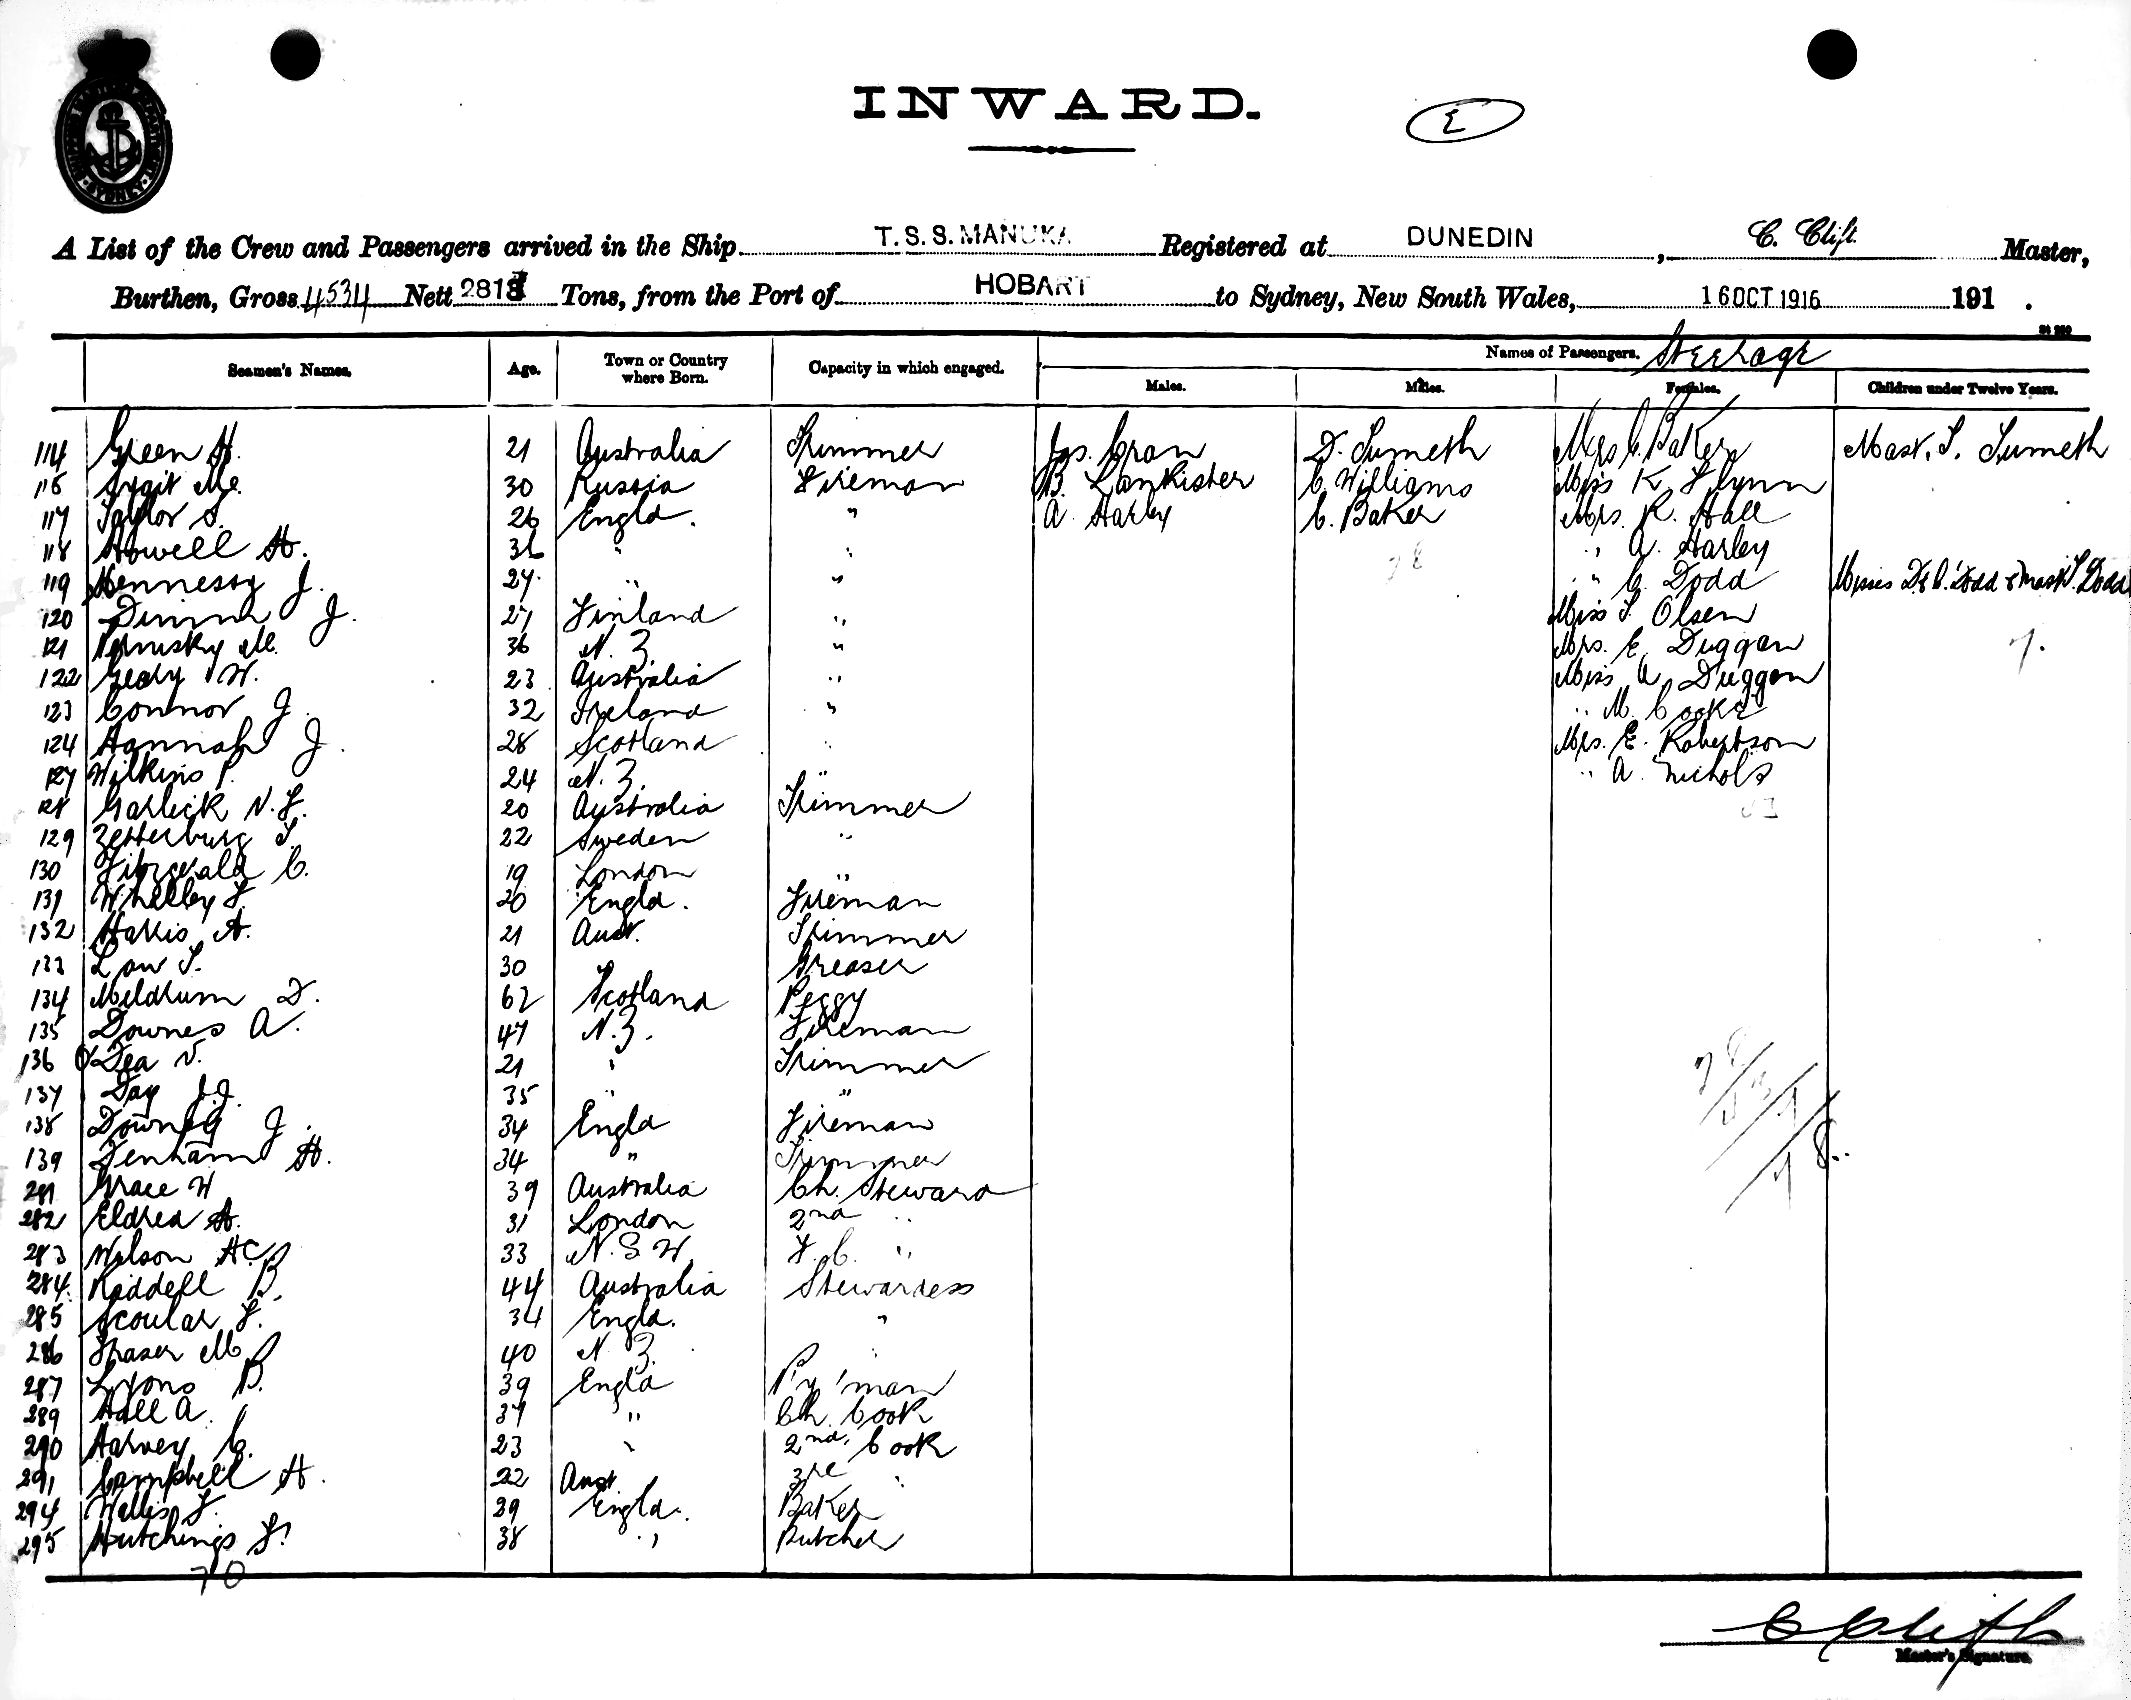 INWARD.
E
A List of the Crew and Passengers arrived in the Ship T.S.S. MANUKA Registered at DUNEDIN, C. Clift Master,
Burthen, Gross 4534 Nett 2813 Tons, from the Port of HOBART to Sydney, New South Wales, 16 OCT 1916 191 .
Seamen's Names. Age. Town or Country where Born. Capacity in which engaged. Names of Passengers. Steerage
Males. Males. Females. Children under Twelve Years.
114 Green H. 21 Australia Trimmer Jas. Cran D. Sumeth Mrs C. Baker Mast. T. Sumeth
116 30 Russia Fireman B. Lankister C. Williams Miss K Flynn
117 Taylor S. 26 Engld. " A. Harley C. Baker Mrs. R. Hall
118 Howell H. 36 " " " A. Harley
119 Hennessy J. 27 " " " C. Dodd Misses D & C. Dodd & Mast. T. Dodd
120 J. 27 Finland " Miss S Olsen
121 36 N. Z " Mrs. E. Duggan 7.
122 Geary W. 23 Australia " Miss A Duggan
123 Connor J. 32 Ireland " " M. Cooke
124 Hannah J. 28 Scotland " Mrs. E. Robertson
127 Wilkins P. 24 N. Z. " " A. Nichols
128 Garlick N. F. 20 Australia Trimmer
129 Zetterburg S. 22 Sweden "
130 Fitzgerald C. 19 London "
131 Whelley F. 20 Engld. Fireman
132 Harris A. 21 Aust. Trimmer
133 Low S. 30 Greaser
134 Meldrum D. 62 Scotland Peggy
135 Downes A. 47 N. Z. Fireman
136 O'Dea V. 21 " Trimmer
137 Day J.J. 35 " "
138 Downey J. 34 Engld Fireman
139 Denham H. 34 " Trimmer
281 Grace W 39 Australia Ch. Steward
282 Eldred A. 31 London 2nd "
283 Wilson HC 33 N. S. W. F. C. "
284. Riddell B. 44 Australia Stewardess
285 Scoular F. 34 Engld. "
286 Fraser M 40 N Z. "
287 Lyons B. 39 Engld P'y'man
289 Hall A. 37 " Ch. Cook
290 Harvey C. 23 " 2nd. Cook
291 Campbell H. 22 Aust 3rd "
294 Wallis F. 39 Engld. Baker
295 Hutchings F. 38 " Butcher
70
C Clift
Master's Signature.